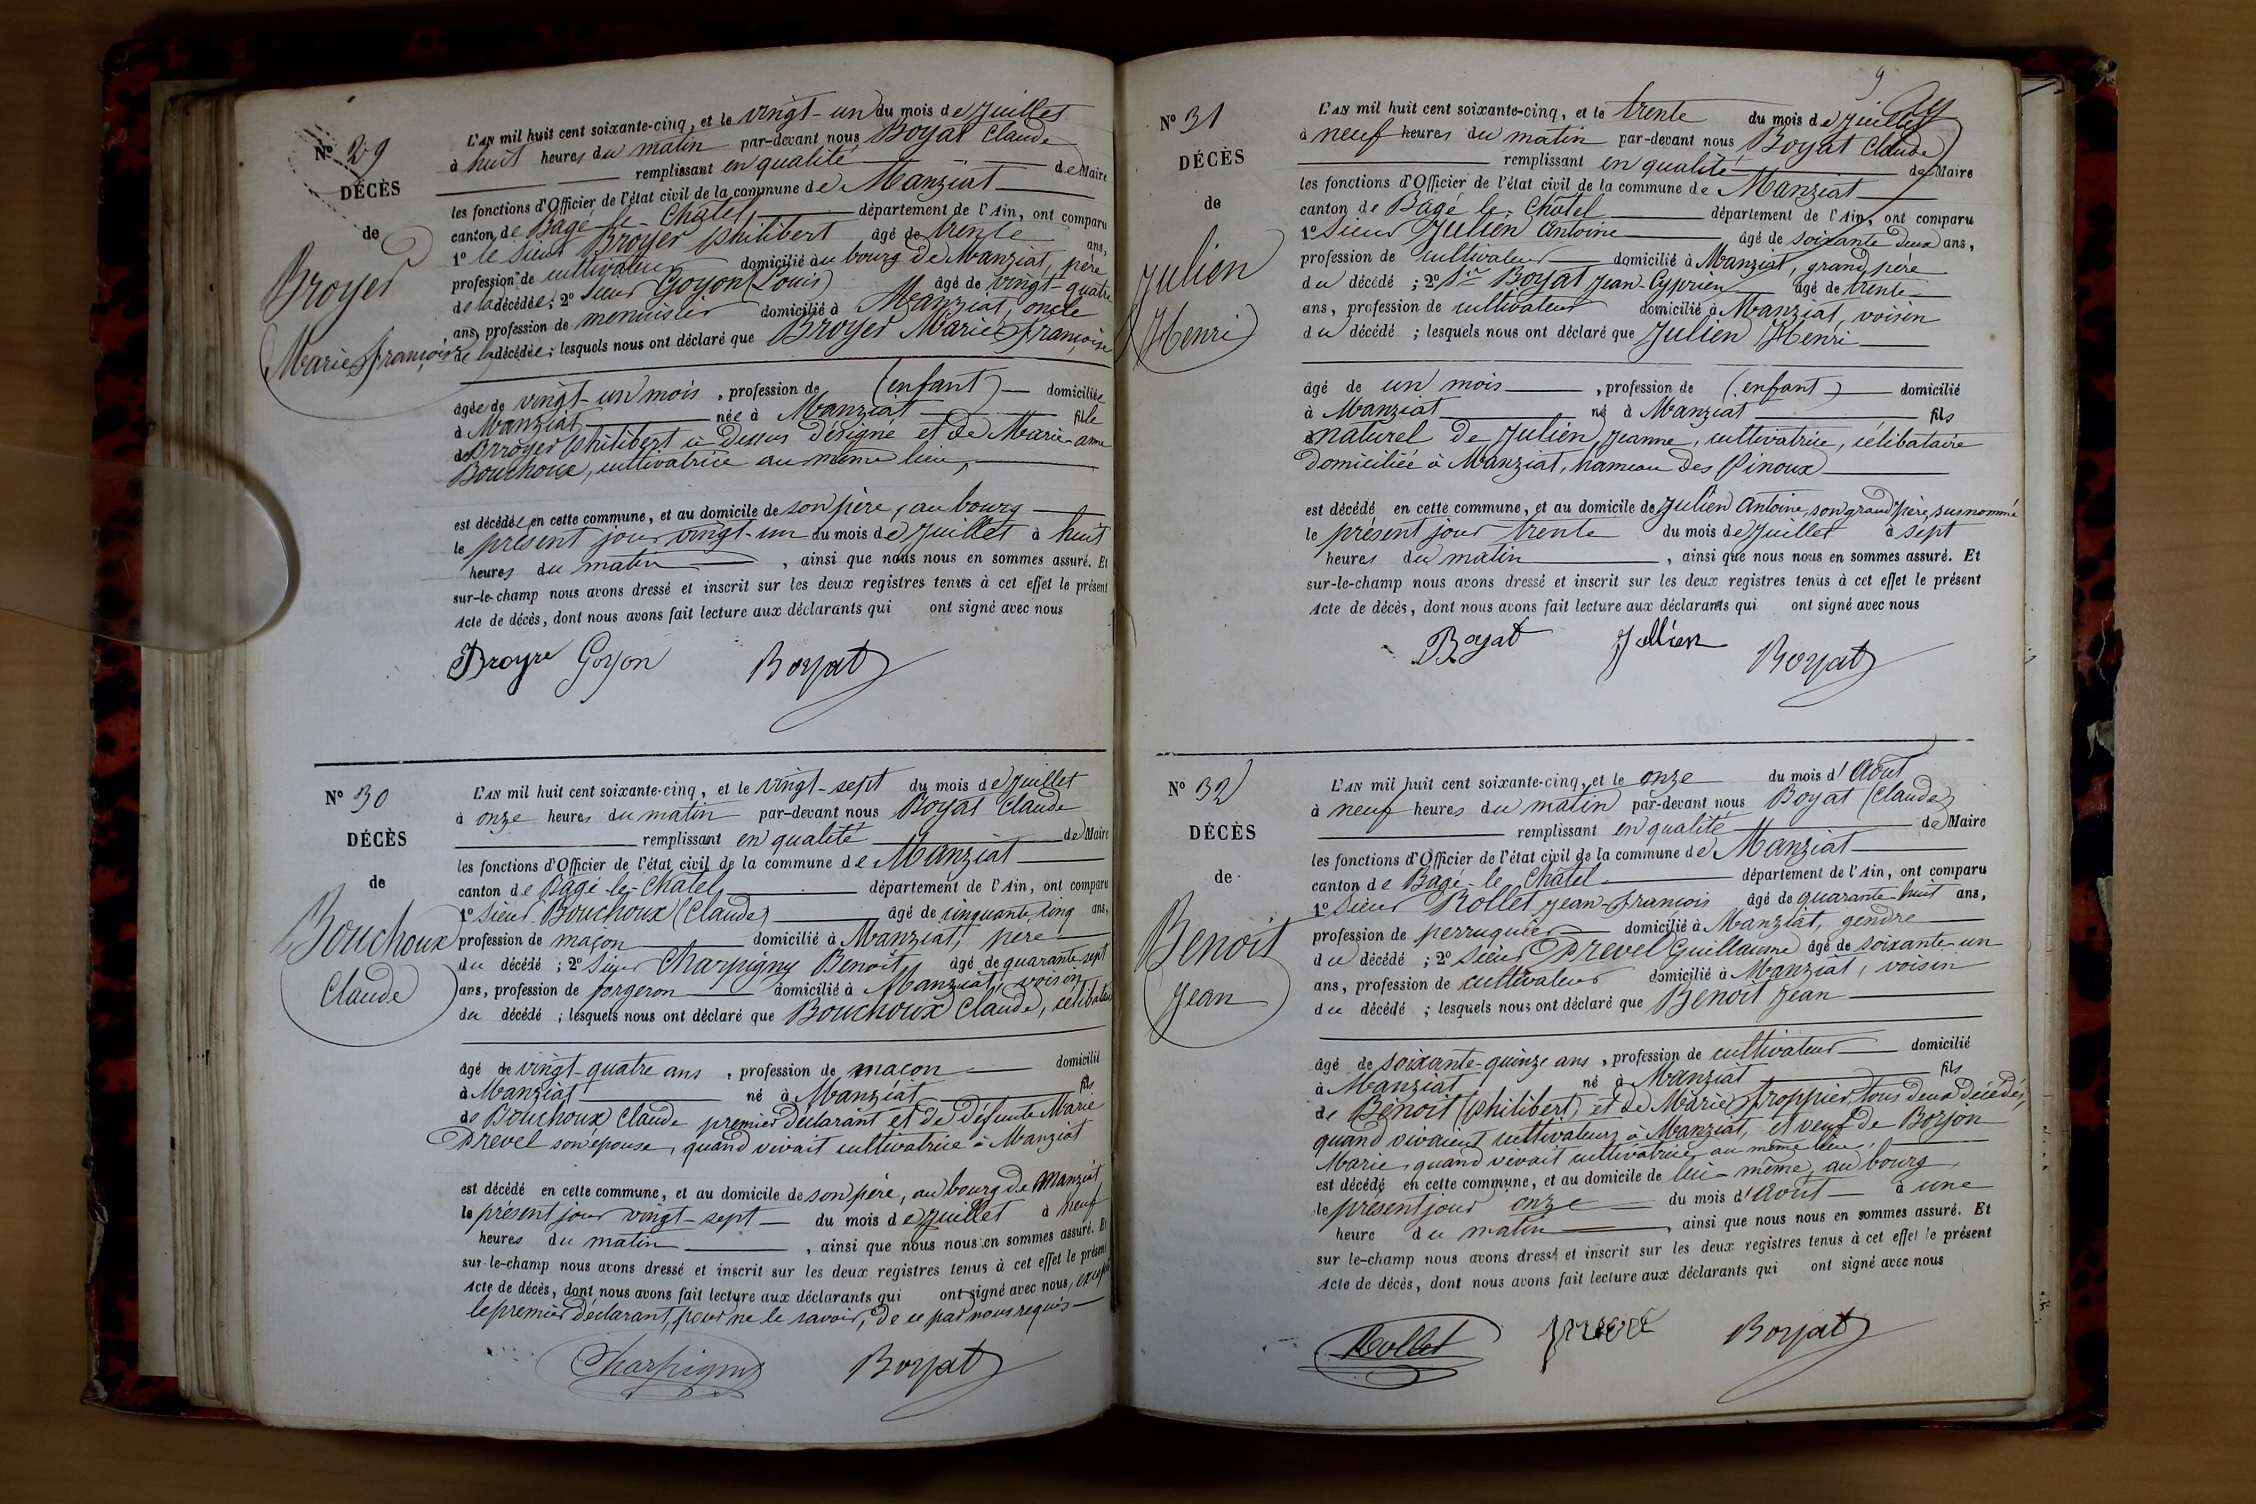 N° 29
DÉCÈS
de
Broyer
Marie françoise
L'AN mil huit cent soixante-cinq, et le vingt-un du mois de Juillet
à huit heures du matin par-devant nous Boyat Claude
remplissant en qualité de Maire
les fonctions d'Officier de l'état civil de la commune de Manziat
canton de Bagé-le-Châtel département de l'Ain, ont comparu
1° le Sieur Broyer Philibert âgé de trente ans,
profession de cultivateur domicilié au bourg de Manziat, père
de la décédée; 2° Sieur Goyon (Louis) âgé de vingt-quatre
ans, profession de menuisier domicilié à Manziat, oncle
de la décédée; lesquels nous ont déclaré que Broyer Marie françoise
âgée de vingt-un mois, profession de (enfant) domiciliée
à Manziat née à Manziat fille
de Broyer Philibert ci-dessus désigné et de Marie-anne
Bouchoux, cultivatrice au même lieu,
est décédée en cette commune, et au domicile de son père, au bourg
le présent jour vingt-un du mois de Juillet à huit
heures du matin, ainsi que nous nous en sommes assuré. Et
sur-le-champ nous avons dressé et inscrit sur les deux registres tenus à cet effet le présent
Acte de décès, dont nous avons fait lecture aux déclarants qui ont signé avec nous
Broyre Goyon Boyat
N° 30
DÉCÈS
de
Bouchoux
Claude
L'AN mil huit cent soixante-cinq, et le vingt-sept du mois de Juillet
à onze heures du matin par-devant nous Boyat Claude
remplissant en qualité de Maire
les fonctions d'Officier de l'état civil de la commune de Manziat
canton de Bagé-le-Châtel département de l'Ain, ont comparu
1° Sieur Bouchoux (Claude) âgé de cinquante cinq ans,
profession de maçon domicilié à Manziat, père
du décédé; 2° Sieur Charpigny Benoît âgé de quarante-sept
ans, profession de forgeron domicilié à Manziat, voisin
du décédé; lesquels nous ont déclaré que Bouchoux Claude, célibataire
âgé de vingt-quatre ans, profession de maçon domicilié
à Manziat né à Manziat fils
de Bouchoux Claude premier déclarant et de défunte Marie
Prevel son épouse, quand vivait cultivatrice à Manziat
est décédé en cette commune, et au domicile de son père, au bourg de Manziat
le présent jour vingt-sept du mois de Juillet à neuf
heures du matin, ainsi que nous nous en sommes assuré. Et
sur-le-champ nous avons dressé et inscrit sur les deux registres tenus à cet effet le présent
Acte de décès, dont nous avons fait lecture aux déclarants qui ont signé avec nous, excepté
le premier déclarant, pour ne le savoir, de ce par nous requis
Charpigny Boyat
9
N° 31
DÉCÈS
de
Julien
Henri
L'AN mil huit cent soixante-cinq, et le trente du mois de Juillet
à neuf heures du matin par-devant nous Boyat Claude
remplissant en qualité de Maire
les fonctions d'Officier de l'état civil de la commune de Manziat
canton de Bagé le Châtel département de l'Ain, ont comparu
1° Sieur Julien Antoine âgé de soixante deux ans,
profession de cultivateur domicilié à Manziat, grand père
du décédé; 2° Sr Boyat Jean-Cyprien âgé de trente
ans, profession de cultivateur domicilié à Manziat, voisin
du décédé; lesquels nous ont déclaré que Julien Henri
âgé de un mois, profession de (enfant) domicilié
à Manziat né à Manziat fils
naturel de Julien, Jeanne, cultivatrice, célibataire
domiciliée à Manziat, hameau des Pinoux
est décédé en cette commune, et au domicile de Julien Antoine, son grand père, susnommé
le présent jour trente du mois de Juillet à sept
heures du matin, ainsi que nous nous en sommes assuré. Et
sur-le-champ nous avons dressé et inscrit sur les deux registres tenus à cet effet le présent
Acte de décès, dont nous avons fait lecture aux déclarants qui ont signé avec nous
Boyat Jullien Boyat
N° 32
DÉCÈS
de
Benoit
Jean
L'AN mil huit cent soixante-cinq, et le onze du mois d'Août
à neuf heures du matin par-devant nous Boyat (Claude)
remplissant en qualité de Maire
les fonctions d'Officier de l'état civil de la commune de Manziat
canton de Bagé-le Châtel département de l'Ain, ont comparu
1° Sieur Rollet Jean-françois âgé de quarante-huit ans,
profession de perruquier domicilié à Manziat, gendre
du décédé; 2° Sieur Prevel Guillaume âgé de soixante-un
ans, profession de cultivateur domicilié à Manziat, voisin
du décédé; lesquels nous ont déclaré que Benoit Jean
âgé de soixante-quinze ans, profession de cultivateur domicilié
à Manziat né à Manziat fils
de Benoit (Philibert) et de Marie froppier, tous deux décédés,
quand vivaient cultivateurs à Manziat, et veuf de Borjon
Marie, quand vivait cultivatrice au même lieu,
est décédé en cette commune, et au domicile de lui-même, au bourg,
le présent jour onze du mois d'Août à une
heure du matin, ainsi que nous nous en sommes assuré. Et
sur le-champ nous avons dressé et inscrit sur les deux registres tenus à cet effet le présent
Acte de décès, dont nous avons fait lecture aux déclarants qui ont signé avec nous
Rollet Boyat